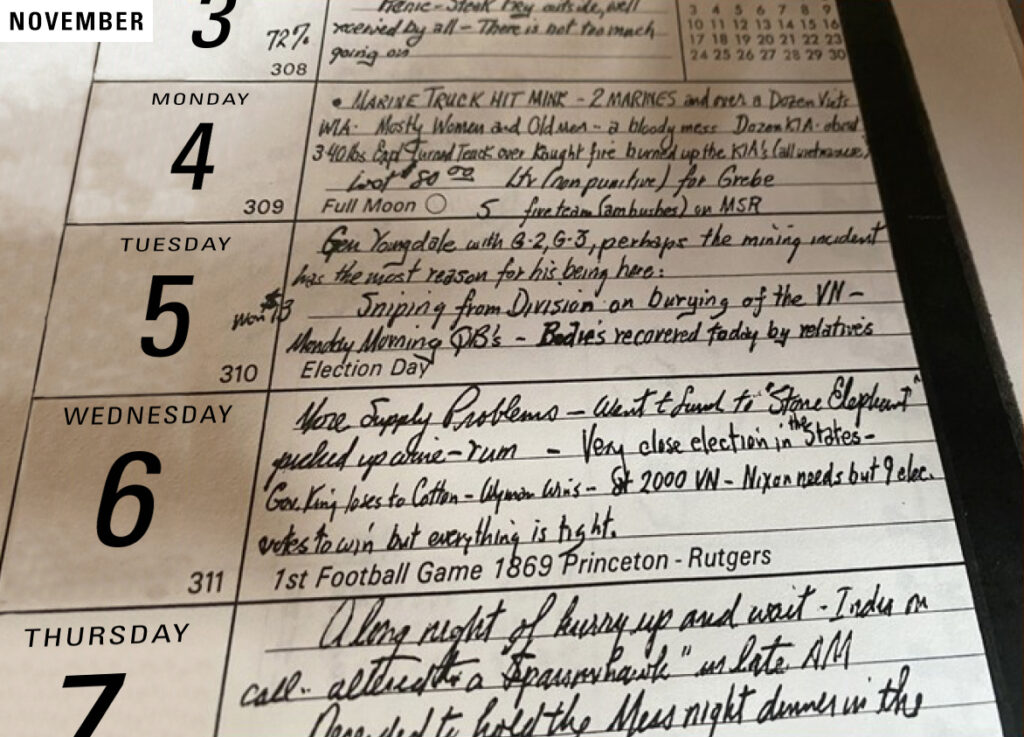 NOVEMBER
3
72%
308
Picnic - Steak Fry outside, well
received by all - There is not too much
going on
3 4 5 6 7 8 9
10 11 12 13 14 15 16
17 18 19 20 21 22 23
24 25 26 27 28 29 30
MONDAY
4
309
• MARINE TRUCK HIT MINE - 2 MARINES and over a Dozen Viets
WIA. Mostly Women and Old men - a bloody mess Dozen KIA. about
340 lbs Expl turned Truck over Caught fire burned up the KIA's (all vietnamese)
Lost $80.00 Ltr (non punitive) for Grebe
Full Moon 5 fire team (ambushes) on MSR
TUESDAY
5
Won $13
310
Gen Youngdale with G-2, G-3, perhaps the mining incident
has the most reason for his being here:
Sniping from Division on burying of the VN -
Monday Morning QB's - Bodies recovered today by relatives
Election Day
WEDNESDAY
6
311
More Supply Problems - Went to "Stone Elephant"
picked up wine - rum - Very close election in the States -
Gov. King loses to Cotton - Wyman wins - at 2000 VN - Nixon needs but 9 elec.
votes to win but everything is tight.
1st Football Game 1869 Princeton - Rutgers
THURSDAY
7
A long night of hurry up and wait - Indus on
call - altered to a "Sparrowhawk" in late AM
Decided to hold the Mess night dinner in the